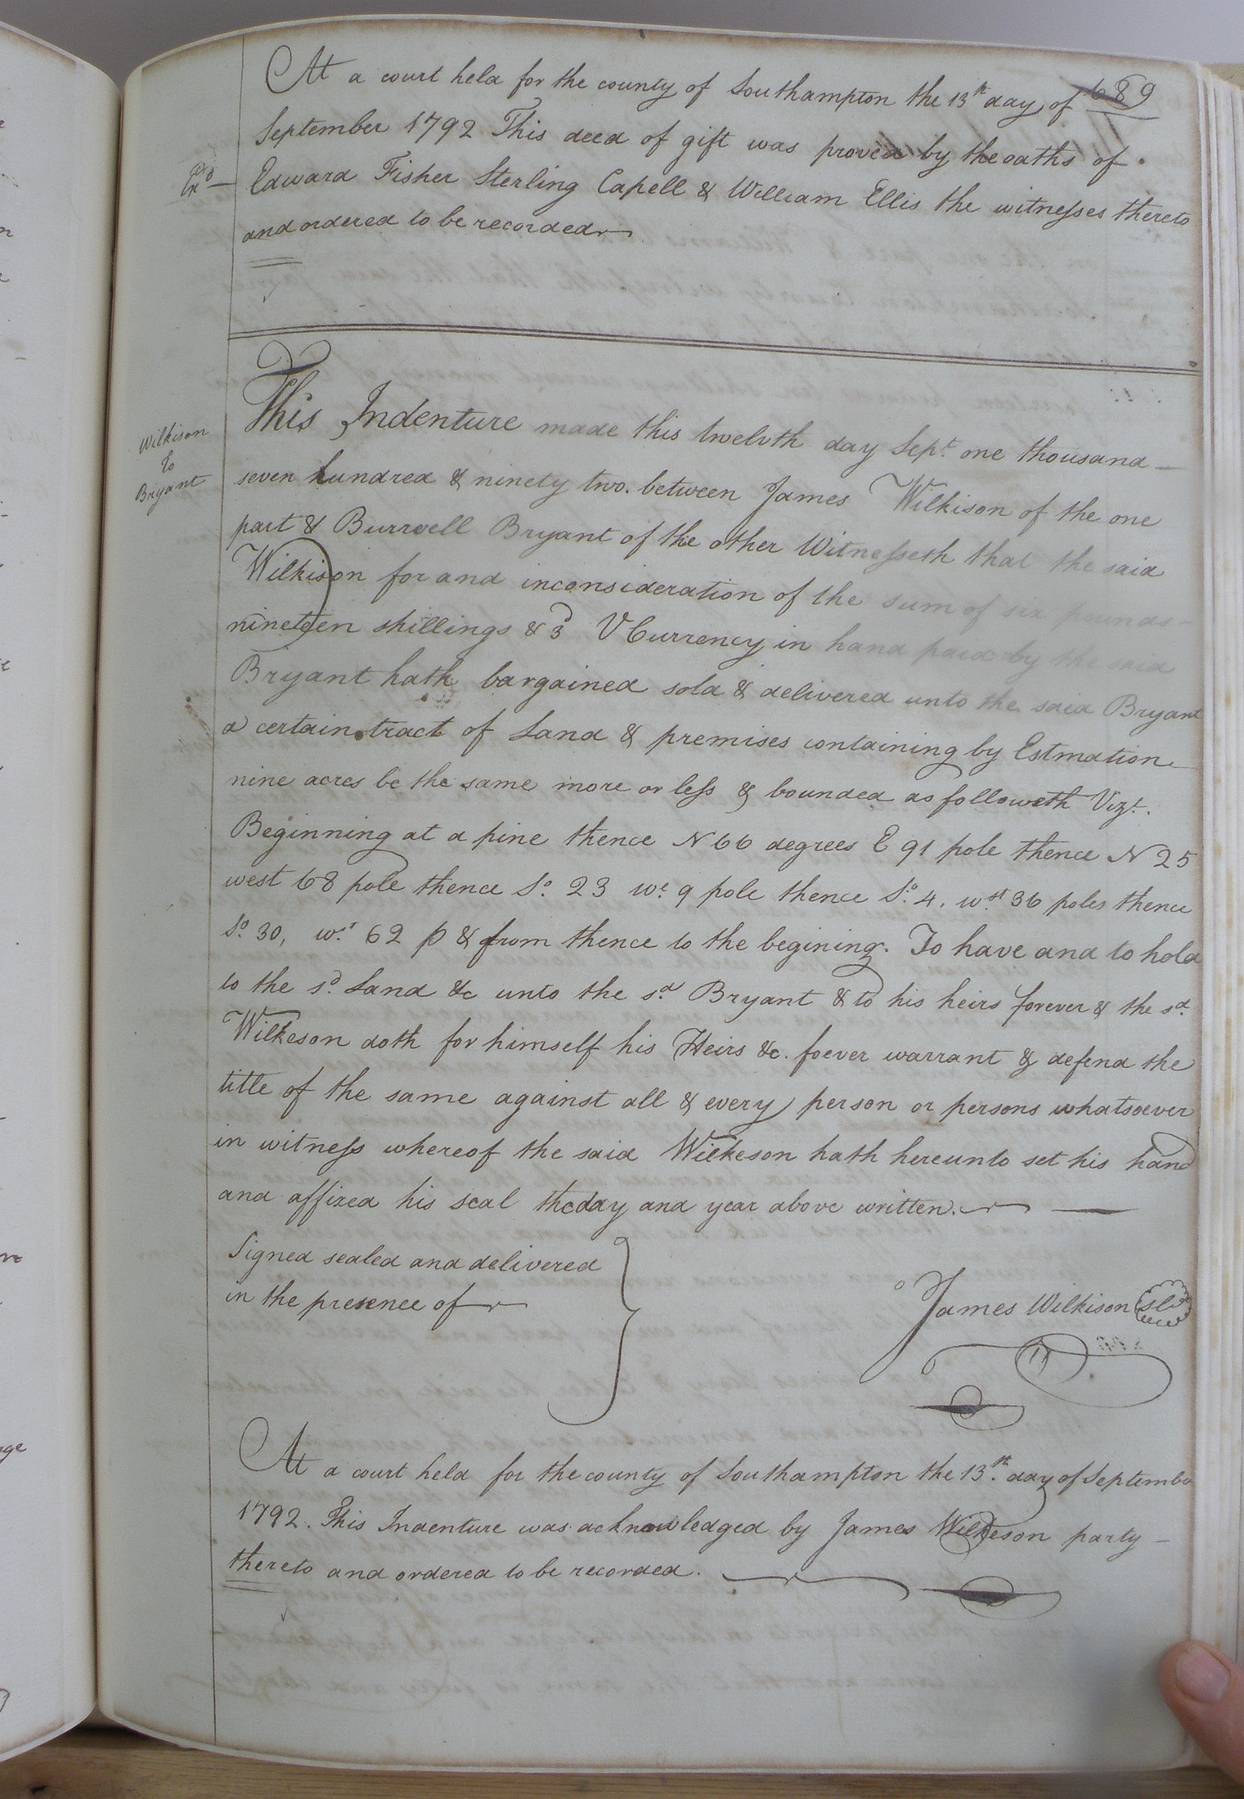 689
At a court held for the county of Southampton the 13th day of
September 1792 This deed of gift was proved by the oaths of
Exd
Edward Fisher Sterling Capell & William Ellis the witnesses thereto
and ordered to be recorded
This Indenture made this twelvth day Sept. one thousand
Wilkison
to
Bryant
seven hundred & ninety two. between James Wilkison of the one
part & Burrwell Bryant of the other Witnesseth that the said
Wilkison for and inconsideration of the sum of six pounds
nineteen shillings & 3d V Currency in hand paid by the said
Bryant hath bargained sold & delivered unto the said Bryant
a certain tract of Land & premises containing by Estmation
nine acres be the same more or less & bounded as followeth Vizt.
Beginning at a pine thence N 66 degrees E 91 pole thence N 25
west 68 pole thence So. 23 wt. 9 pole thence So. 4. wst. 36 poles thence
So. 30, wt. 62 p & from thence to the begining. To have and to hold
to the sd. Land &c unto the sd. Bryant & to his heirs forever & the sd.
Wilkeson doth for himself his Heirs &c. foever warrant & defend the
title of the same against all & every person or persons whatsoever
in witness whereof the said Wilkeson hath hereunto set his hand
and affixed his seal the day and year above written.
Signed sealed and delivered
in the presence of
James Wilkison
At a court held for the county of Southampton the 13th. day of September
1792. This Indenture was acknowledged by James Wilkeson party
thereto and ordered to be recorded.